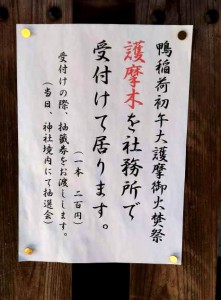 鴨稲荷初午大護摩御火焚祭
護摩木を社務所で
受付けて居ります。
(一本 二百円)
受付けの際、抽籤券をお渡しします。
(当日、神社境内にて抽選会)